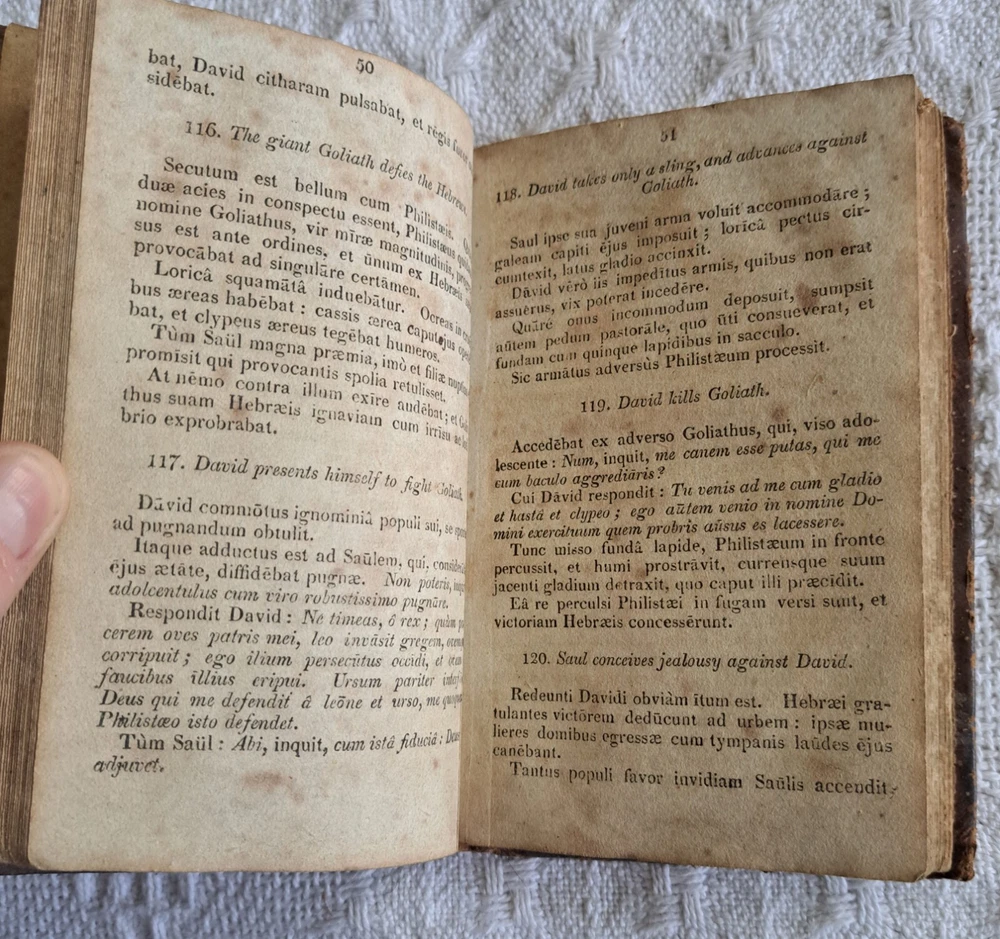 50
bat, David citharam pulsabat, et rēgis furor
sidēbat.
116. The giant Goliath defies the Hebrews.
Secutum est bellum cum Philistæis.
duæ acies in conspectu essent, Philistæus
nomine Goliathus, vir miræ magnitudinis,
sus est ante ordines, et ūnum ex Hebræis
provocābat ad singulāre certāmen.
Loricâ squamātâ induebātur. Ocreas in
bus æreas habēbat : cassis ærea caput ejus
bat, et clypeus æreus tegēbat humeros.
Tùm Saül magna præmia, imò et filiæ
promīsit qui provocantis spolia retulisset.
At nēmo contra illum exire audēbat; et
thus suam Hebræis ignaviam cum irrīsu
brio exprobrabat.
117. David presents himself to fight Goliath.
Dāvid commōtus ignominiâ populi sui, se
ad pugnandum obtulit.
Itaque adductus est ad Saūlem, qui,
ējus ætāte, diffidēbat pugnæ. Non poteris,
adolcentulus cum viro robustissimo pugnāre.
Respondit David : Ne timeas, ô rex;
cerem oves patris mei, leo invāsit gregem,
corripuit; ego ilium persecūtus occīdi, et
faucibus illius eripui. Ursum pariter
Deus qui me defendit â leōne et urso, me
Philistæo isto defendet.
Tùm Saül : Abi, inquit, cum istâ fiduciâ :
adjuvet.
51
118. David takes only a sling, and advances against
Goliath.
Saul ipse sua juveni arma voluit accommodāre ;
galeam capiti ējus imposuit ; loricâ pectus cir-
cumtexit, latus gladio accinxit.
Dāvid vērò iis impedītus armis, quibus non erat
assuētus, vix poterat incedēre.
Quārè onus incommodum deposuit, sumpsit
aūtem pedum pastorāle, quo ūti consueverat, et
fundam cum quinque lapidibus in sacculo.
Sic armātus adversùs Philistæum processit.
119. David kills Goliath.
Accedēbat ex adverso Goliathus, qui, viso ado-
lescente : Num, inquit, me canem esse putas, qui me
cum baculo aggrediāris?
Cui Dāvid respondit : Tu venis ad me cum gladio
et hastâ et clypeo ; ego aūtem venio in nomine Do-
mini exercituum quem probris aūsus es lacessere.
Tunc misso fundâ lapide, Philistæum in fronte
percussit, et humi prostrāvit, currensque suum
jacenti gladium detraxit, quo caput illi præcidit.
Eâ re perculsi Philistæi in fugam versi sunt, et
victoriam Hebræis concessērunt.
120. Saul conceives jealousy against David.
Redeunti Davidi obviàm ītum est. Hebræi gra-
tulantes victōrem dedūcunt ad urbem : ipsæ mu-
lieres domibus egressæ cum tympanis laūdes ējus
canēbant.
Tantus populi favor invidiam Saūlis accendit